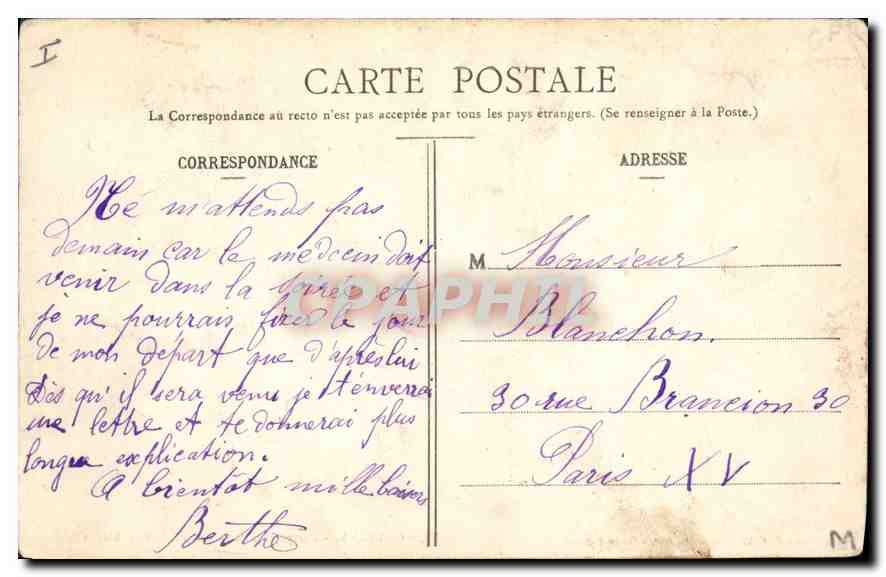 I
CARTE POSTALE
La Correspondance au recto n'est pas acceptée par tous les pays étrangers. (Se renseigner à la Poste.)
CORRESPONDANCE
Né m'attends pas
demain car le médecin doit
venir dans la soirée et
je ne pourrais fixer le jour
de mon départ que d'après lui
Dès qu'il sera venu je t'enverrai
une lettre et te donnerai plus
longue explication.
A bientôt mille baisers
Berthe
ADRESSE
M Monsieur
Blanchon.
30 rue Brancion 30
Paris XV
M
CPAPHIL